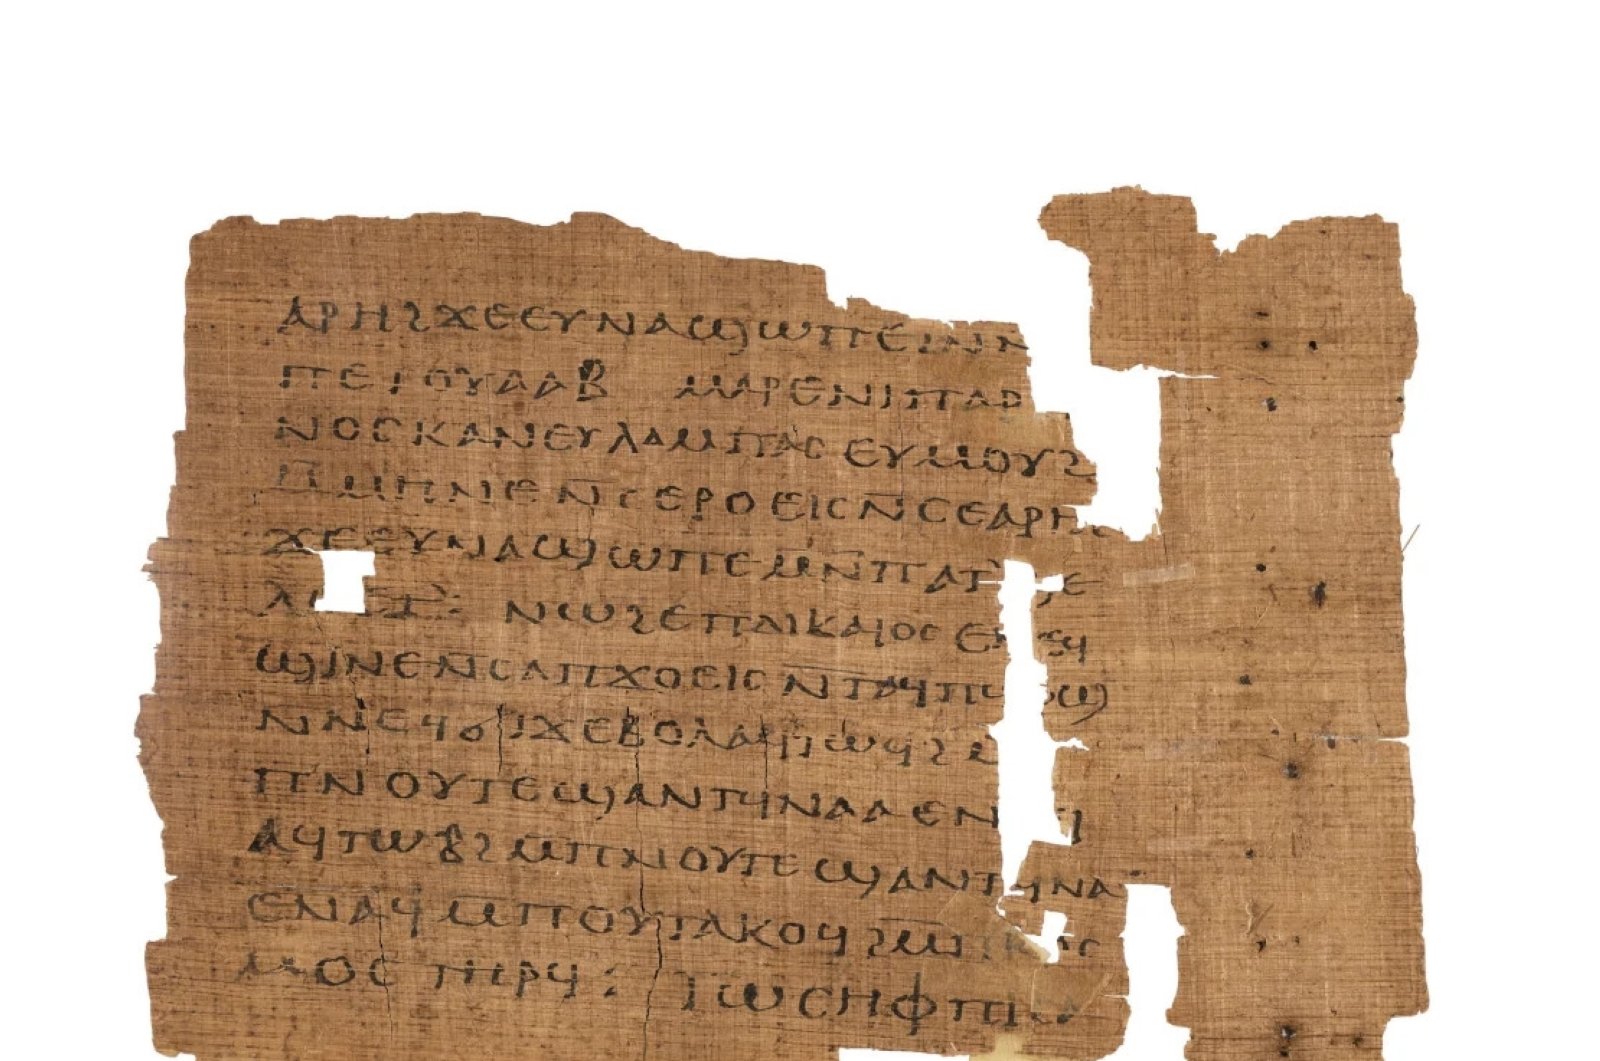 ⲁⲣⲏϩϫⲉⲉⲩⲛⲁϣⲱⲡⲉ
ⲡⲉⲧⲟⲩⲁⲁⲃ ⲙⲁⲣⲉⲛⲓⲡⲁⲣ
ⲛⲟⲥⲕⲁⲛⲉⲩⲗⲁⲙⲡⲁⲥⲉⲩⲙⲟⲩϩ
ⲙⲙⲏⲛⲉⲛ̅ⲥⲉⲣⲟⲉⲓⲥⲛ̅ⲥⲉⲁⲣⲏϩ
ϫⲉⲉⲩⲛⲁϣⲱⲡⲉⲙⲛ̅ⲡⲁⲅ ⲅⲉ
ⲛⲱϩⲉⲡⲇⲓⲕⲁⲓⲟⲥ
ϣⲓⲛⲉⲛⲥⲁⲡϫⲟⲉⲓⲥⲛ̅ⲧⲁϥⲡ ⲱϣ
ⲛⲛⲉϥϭⲓϫⲉⲃⲟⲗⲁϥⲧⲱⲃϩ
ⲡⲛⲟⲩⲧⲉϣⲁⲛⲧϥⲛⲁⲁⲉⲛ ϥ
ⲁϥⲧⲱⲃϩⲙ̅ⲡⲛⲟⲩⲧⲉϣⲁⲛⲧϥⲛⲁ
ⲉⲛⲁϥⲙ̅ⲡⲟⲩⲧⲁⲕⲟϥϩⲙ̅ⲡⲕⲟⲥ
ⲙⲟⲥⲧⲏⲣϥ: ⲓⲱⲥⲏⲫ